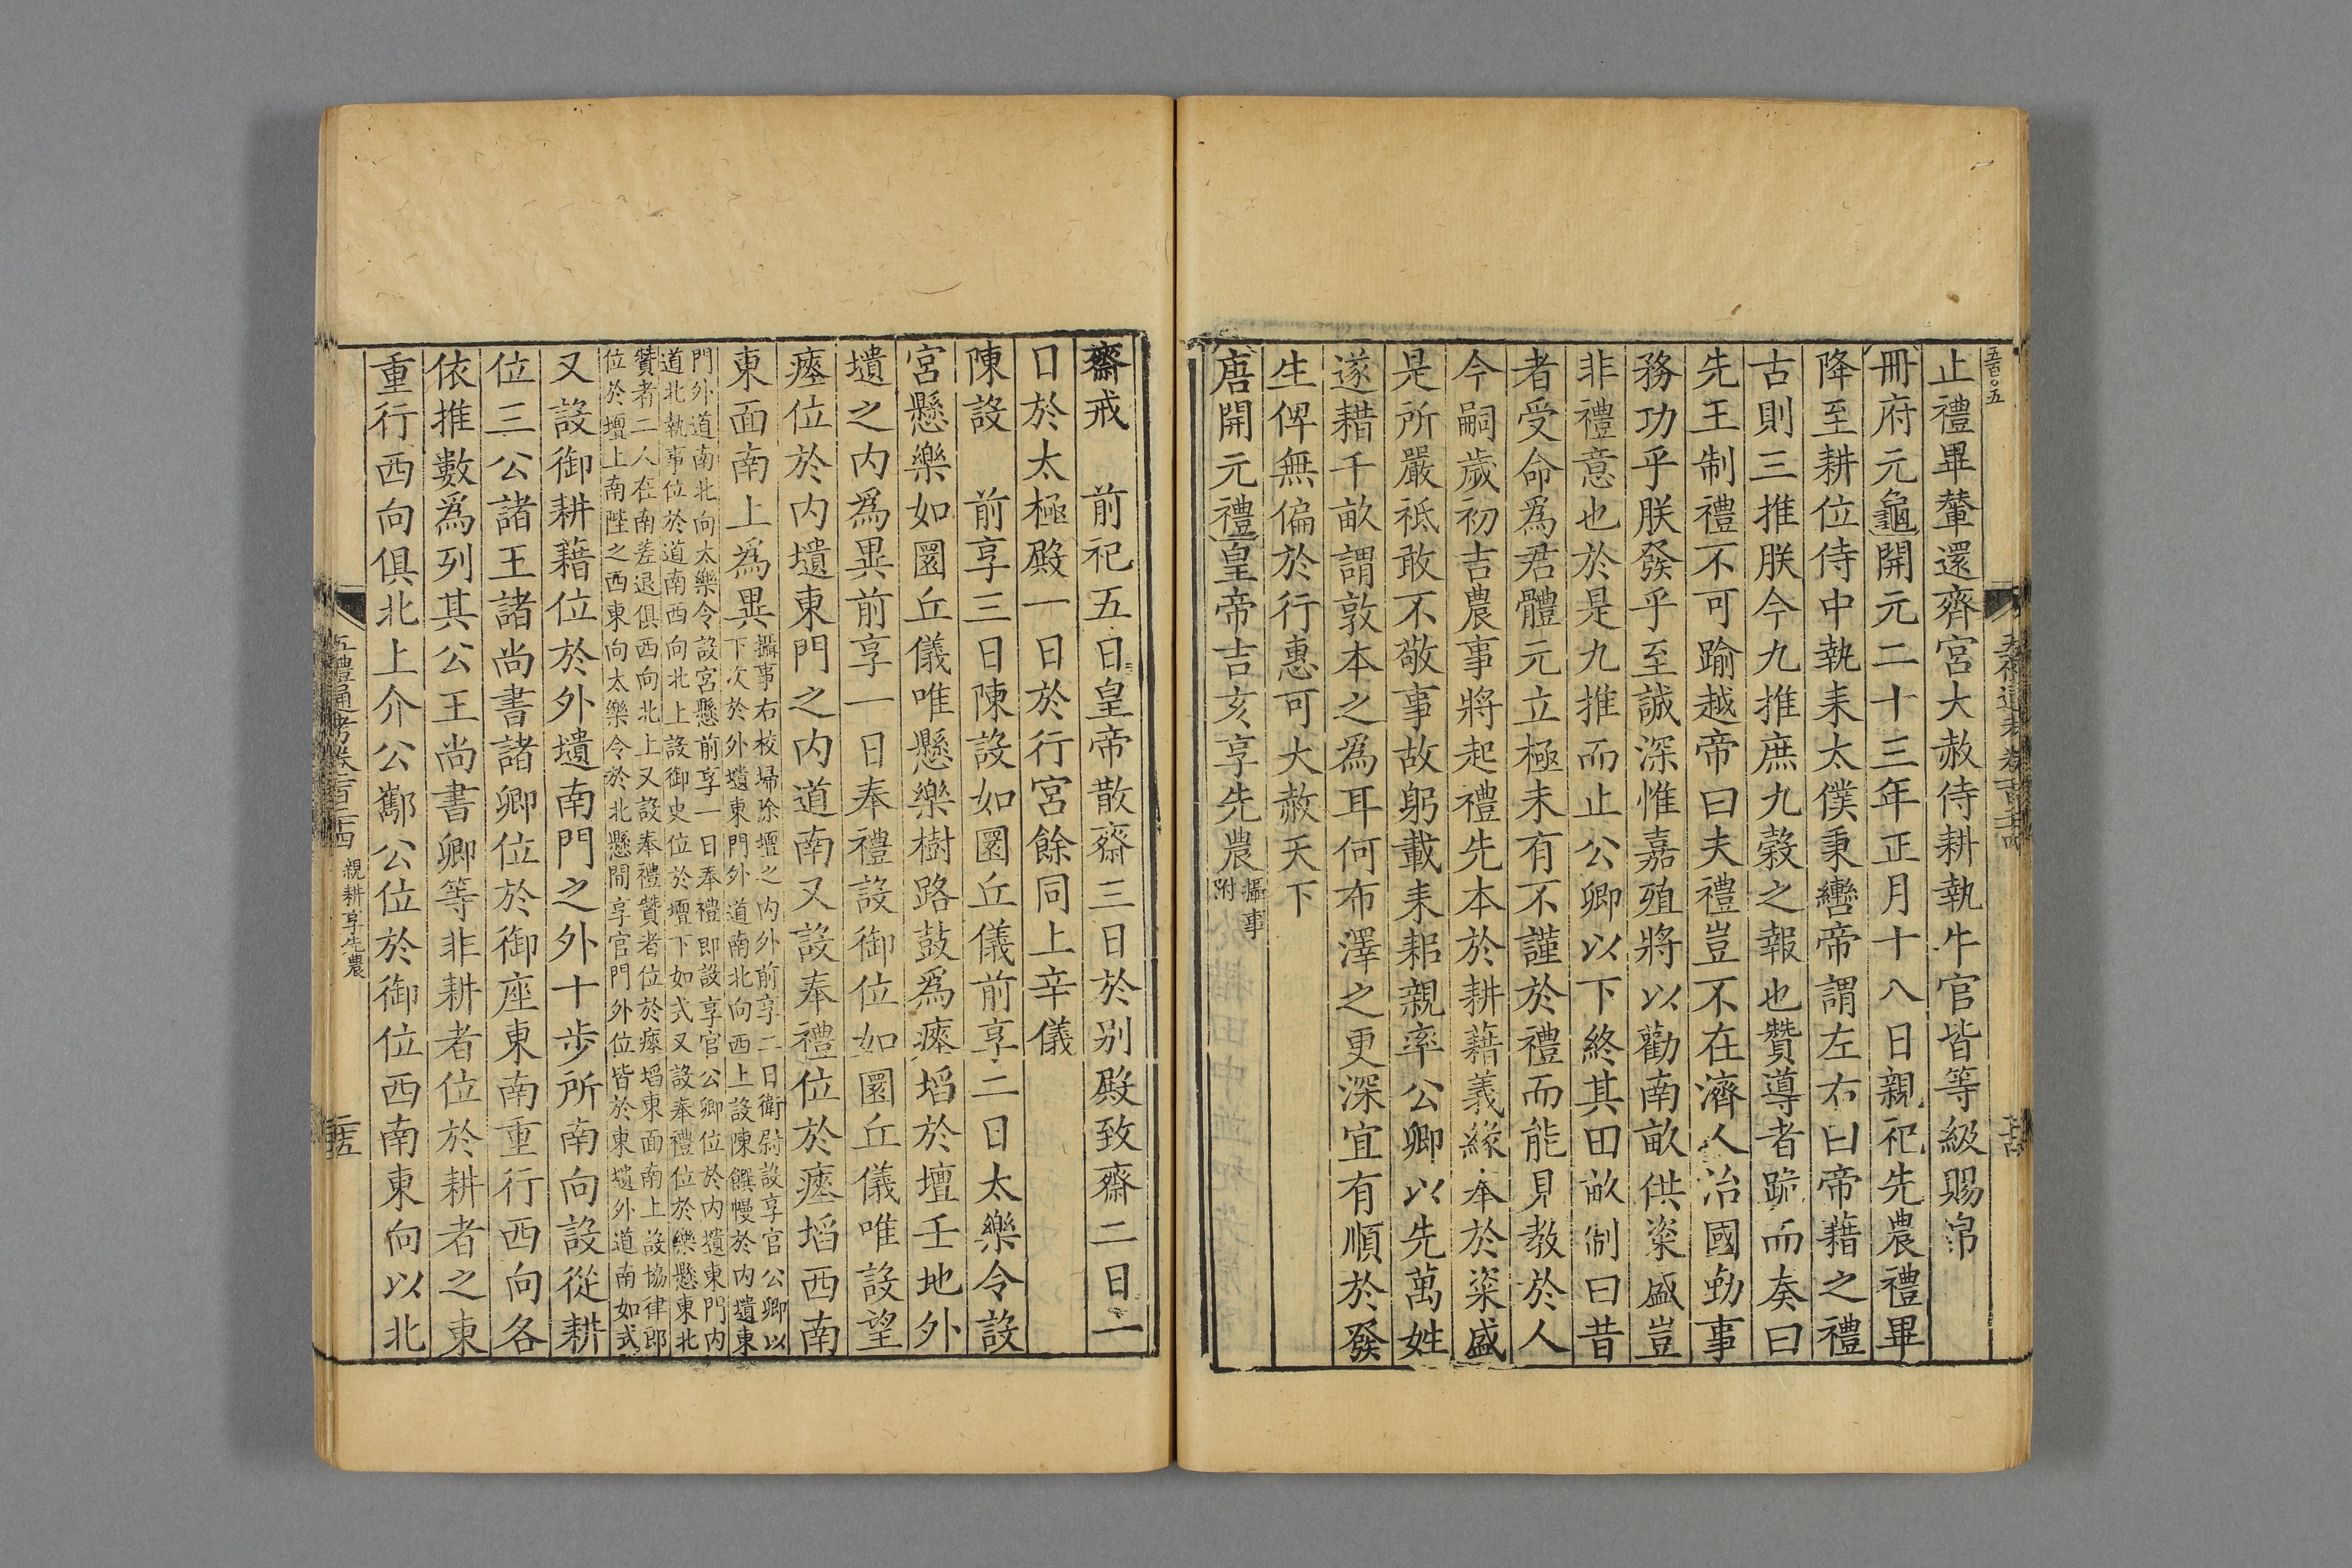 止禮畢輦還齊宮大赦侍耕執牛官皆等級賜帛
冊府元龜開元二十三年正月十八日親祀先農禮畢
降至耕位侍中執耒太僕秉轡帝謂左右曰帝藉之禮
古則三推朕今九推庶九穀之報也贊導者跪而奏曰
先王制禮不可踰越帝曰夫禮豈不在濟人治國勤事
務功乎朕發乎至誠深惟嘉殖將以勸南畝供粢盛豈
非禮意也於是九推而止公卿以下終其田畝制曰昔
者受命爲君體元立極未有不謹於禮而能見教於人
今嗣歲初吉農事將起禮先本於耕藉義緣奉於粢盛
是所嚴祗敢不敬事故躬載耒耜親率公卿以先萬姓
遂耤千畝謂敦本之爲耳何布澤之更深宜有順於發
生俾無偏於行惠可大赦天下
唐開元禮皇帝吉亥享先農攝事附
齋戒　前祀五日皇帝散齋三日於别殿致齋二日一
日於太極殿一日於行宮餘同上辛儀
陳設　前享三日陳設如圜丘儀前享二日太樂令設
宮懸樂如圜丘儀唯懸樂樹路鼓爲瘞埳於壇壬地外
壝之内爲異前享一日奉禮設御位如圜丘儀唯設望
瘞位於内壝東門之内道南又設奉禮位於瘞埳西南
東面南上爲異攝事右校埽除壇之内外前享二日衛尉設享官公卿以
下次於外壝東門外道南北向西上設陳饌幔於内壝東
門外道南北向太樂令設宮懸前享一日奉禮即設享官公卿位於内壝東門内
道北執事位於道南西向北上設御史位於壇下如式又設奉禮位於樂懸東北
贊者二人在南差退俱西向北上又設奉禮贊者位於瘞埳東面南上設協律郎
位於壇上南陛之西東向太樂令於北懸間享官門外位皆於東壝外道南如式
又設御耕藉位於外壝南門之外十步所南向設從耕
位三公諸王諸尚書諸卿位於御座東南重行西向各
依推數爲列其公王尚書卿等非耕者位於耕者之東
重行西向俱北上介公酅公位於御位西南東向以北
五禮通考卷一百二十四　親耕享先農
二十五